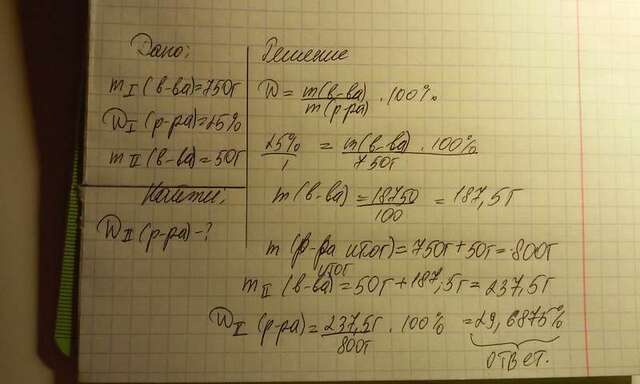 Дано:
m I (в-ва)=750г
W I (р-ра)=25%
m II (в-ва)=50г
Найти:
W II (р-ра)-?
Решение
W = m(в-ва) / m(р-ра) · 100%
25% / 1 = m(в-ва) · 100% / 750г
m(в-ва) = 18750 / 100 = 187,5г
m (р-ра итог)=750г+50г=800г
m II итог (в-ва)=50г+187,5г=237,5г
W II (р-ра)= 237,5г / 800г · 100% =29,6875%
ответ.